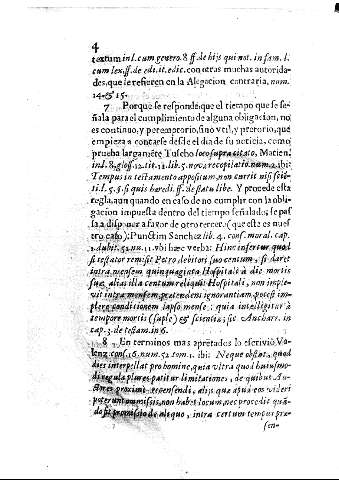 4
textum in l. cum genero. 8. ff. de hijs qui not. in fam. l.
cum lex. ff. de edit. it. edic. con otras muchas autorida-
des, que se refieren en la Alegacion contraria, num.
14. & 15.
7 Porque se responde, que el tiempo que se se-
ñala para el cumplimiento de alguna obligacion, no
es continuo, y peremptorio, sino vtil, y pretorio, què
empieza a contarse desde el dia de su noticia, como
prueba largamẽte Tuscho loco supra citato, Matien.
in l. 8. glos. 12. tit. 11. lib. 5. nou. recopilatio. num. 2. ibi:
Tempus in testamento appositum, non currit nisi scie-
ti l. 5. §. si quis haredi. ff. de statu libe. Y procede esta
regla, aun quando en caso de no cumplir con la obli-
gacion impuesta dentro del tiempo señalado, se pas-
sa a disponer a fauor de otro tercero (que esta es nues-
tro caso) Punctim Sanchez lib. 4. cons. moral. cap.
1. dubit. 52. nu. 11. vbi hæc verba: Hinc infertur quod
si testator remisit Petro debitori suo centum, si daret
intra mensem quinquaginta Hospitali à die mortis
suæ, alias illa centum reliquit Hospitali, non imple-
vit intra mensem, prætendens ignorantiam, potest im-
plere conditionem lapso mense; quia intelligitur à
tempore mortis (suple) & scientiæ; sic Ancharr. in
cap. 3. de testam. in 6.
8 En terminos mas apretados lo escrivio Va-
lenz. cons. 16. num. 52. tom. 1. ibi: Neque obstat, quod
dies interpellat pro homine, quia vltra quod huiusmo-
di regula plures patitur limitationes, de quibus Au-
proximi recensendi, aliis que apud eos videri
poterunt omissis, non habet locum, nec procedit quan-
do sit promissio de aliquo, intra certum tempus præ-
sen-